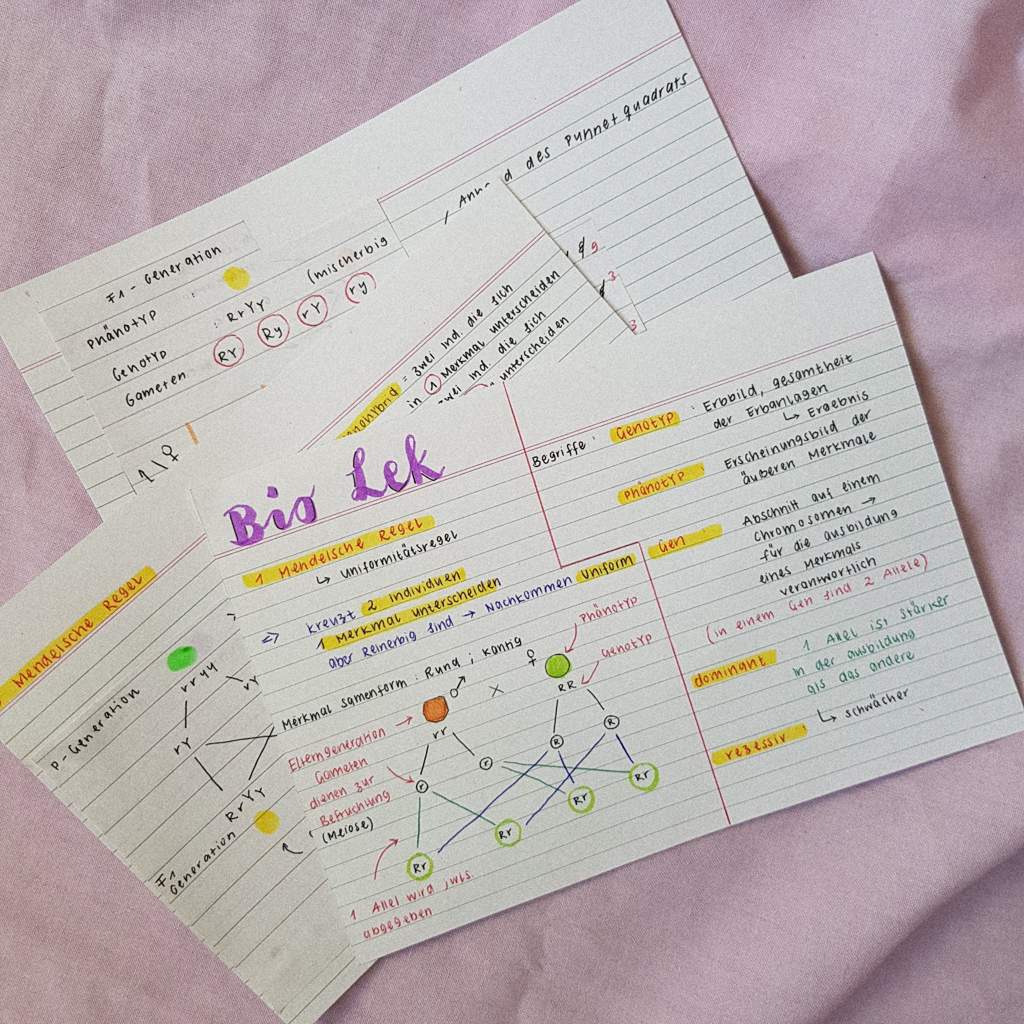 Anh d des punnetquadrats
F1 - Generation
Phänotyp :
Genotyp : RrYy (mischerbig
Gameten RY Ry rY ry
1 \ ♀
9
3
3
monohybrid = zwei Ind die sich
in ① Merkmal unterscheiden
zwei ind die sich
unterscheiden
Mendelsche Regel
P-Generation
rryy
rY
rY
RrYy
F1
Generation
Bio Lek
1 Mendelsche Regel
↳ uniformitätsregel
=> kreuzt 2 Individuen
1 Merkmal unterscheiden
aber Reinerbig sind → Nachkommen uniform
Merkmal samenform : Rund ; kantig
Phänotyp
Genotyp
♂ x ♀
rr RR
Elterngeneration →
Gameten
dienen zur
Befruchtung
(Meiose)
r r R R
Rr Rr Rr Rr
1 Allel wird jwls.
abgegeben
Begriffe : Genotyp : Erbbild, gesamtheit
der Erbanlagen
↳ Ergebnis
Phänotyp Erscheinungsbild der
äußeren Merkmale
Gen Abschnitt auf einem
Chromosomen →
für die ausbildung
eines Merkmals
verantwortlich
(in einem Gen sind 2 Allele)
dominant 1 Allel ist stärker
in der ausbildung
als das andere
↳ schwächer
rezessiv